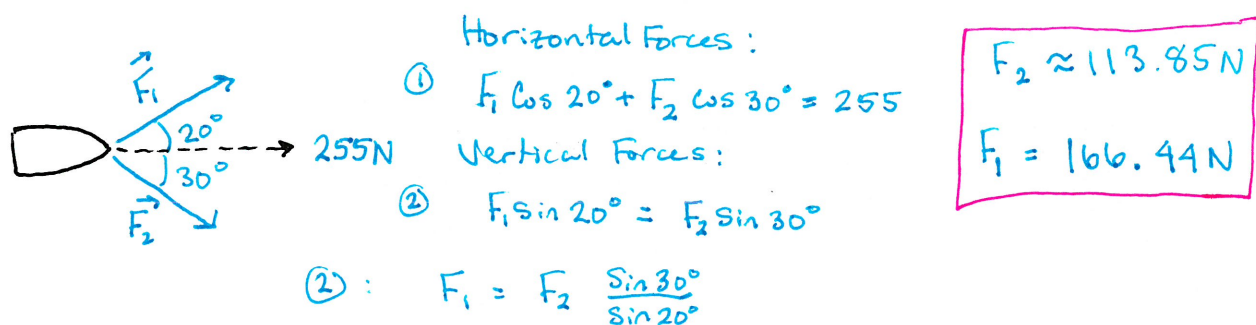 F⃗₁
20°
30°
F⃗₂
255N
Horizontal Forces:
① F₁ Cos 20° + F₂ cos 30° = 255
Vertical Forces:
② F₁ Sin 20° = F₂ Sin 30°
②: F₁ = F₂ Sin 30°/Sin 20°
F₂ ≈ 113.85N
F₁ = 166.44N